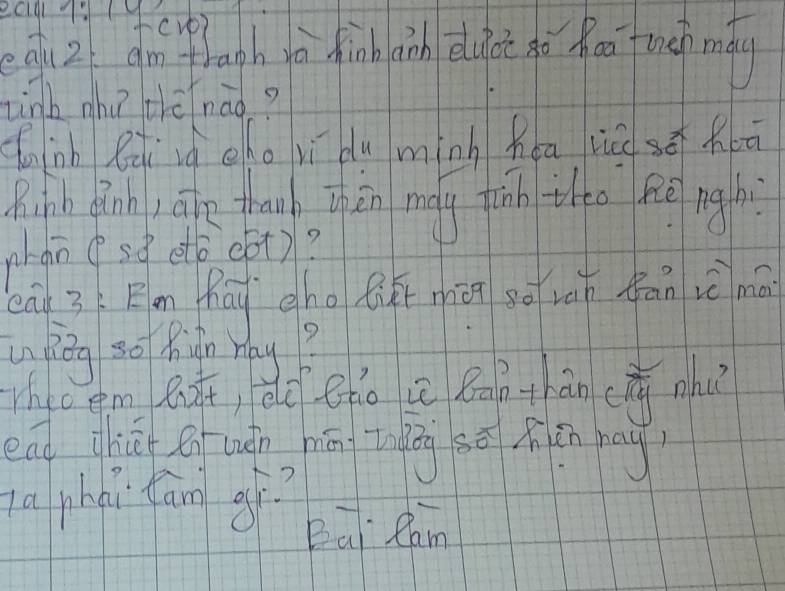 câu 1:
câu 2: âm thanh và hình ảnh được số hoá trên máy
tính như thế nào?
trình bài và cho ví dụ minh họa việc số hoá
hình ảnh, âm thanh trên máy tính theo hệ nghị
phân ( sơ đồ cột)?
câu 3: Em hãy cho biết một số văn bản về môi
trường số hiện nay?
Theo em biết, để bảo vệ bản thân cũng như
các thiết bị trên môi trường số hiện nay,
ta phải làm gì?
Bài làm